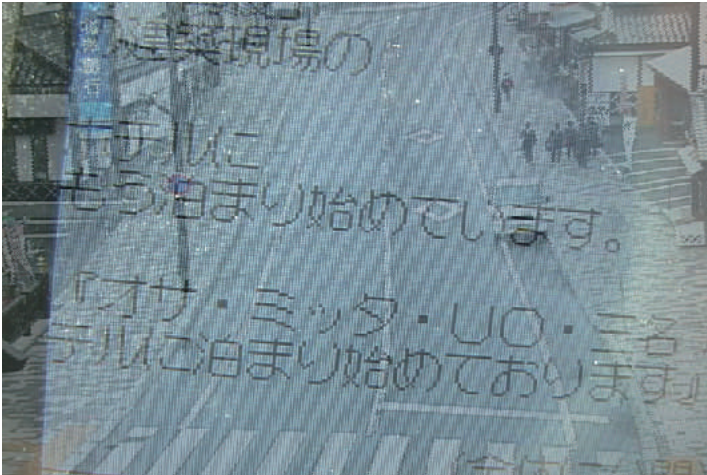 建築現場の
ホテルに
もう泊まり始めています。
『オサ・ミッタ・UO・ニ名
テルに泊まり始めております』